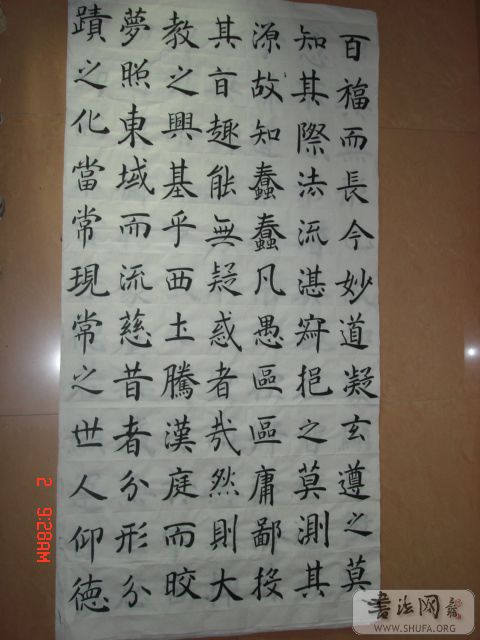 百福而長今妙道凝玄遵之莫
知其際法流湛寂挹之莫測其
源故知蠢蠢凡愚區區庸鄙投
其旨趣能無疑惑者哉然則大
教之興基乎西土騰漢庭而皎
夢照東域而流慈昔者分形分
蹟之化當常現常之世人仰德
2 9:28AM
書法网
WWW.SHUFA.ORG